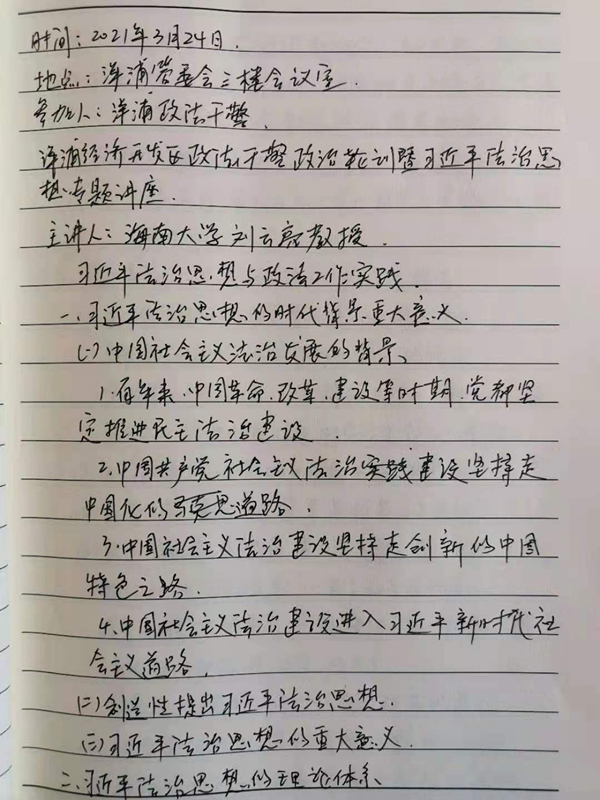 时间：2021年3月24日.
地点：洋浦管委会三楼会议室.
参加人：洋浦政法干警.
洋浦经济开发区政法干警政治轮训暨习近平法治思
想专题讲座.
主讲人：海南大学刘云亮教授.
习近平法治思想与政法工作实践.
一、习近平法治思想的时代背景重大意义.
(一)中国社会主义法治发展的背景、
1.百年来、中国革命、改革、建设等时期、党都坚
定推进民主法治建设.
2.中国共产党社会主义法治实践建设坚持走
中国化的马克思道路.
3.中国社会主义法治建设坚持走创新的中国
特色之路.
4.中国社会主义法治建设进入习近平新时代社
会主义道路.
(二)创造性提出习近平法治思想.
(三)习近平法治思想的重大意义.
二、习近平法治思想的理论体系